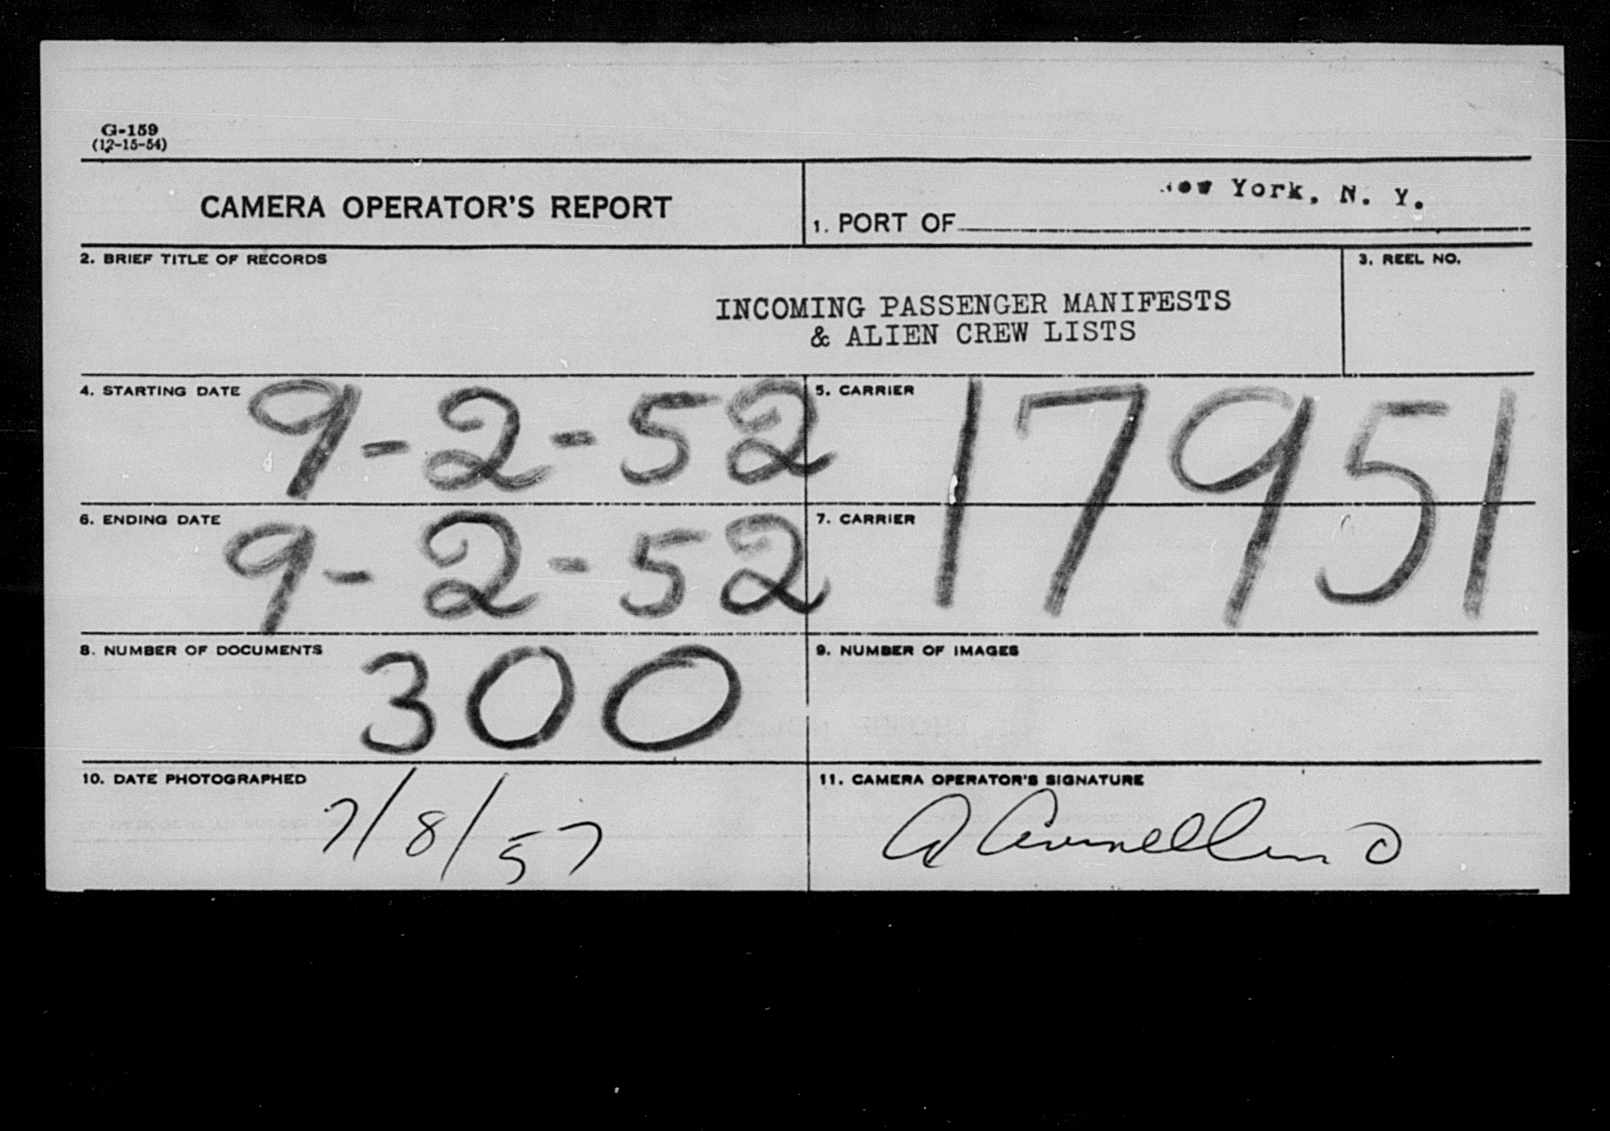 G-159
(12-15-54)
CAMERA OPERATOR'S REPORT
1. PORT OF New York, N. Y.
2. BRIEF TITLE OF RECORDS
3. REEL NO.
INCOMING PASSENGER MANIFESTS
& ALIEN CREW LISTS
4. STARTING DATE 9-2-52
5. CARRIER
17951
6. ENDING DATE 9-2-52
7. CARRIER
8. NUMBER OF DOCUMENTS 300
9. NUMBER OF IMAGES
10. DATE PHOTOGRAPHED
7/8/57
11. CAMERA OPERATOR'S SIGNATURE